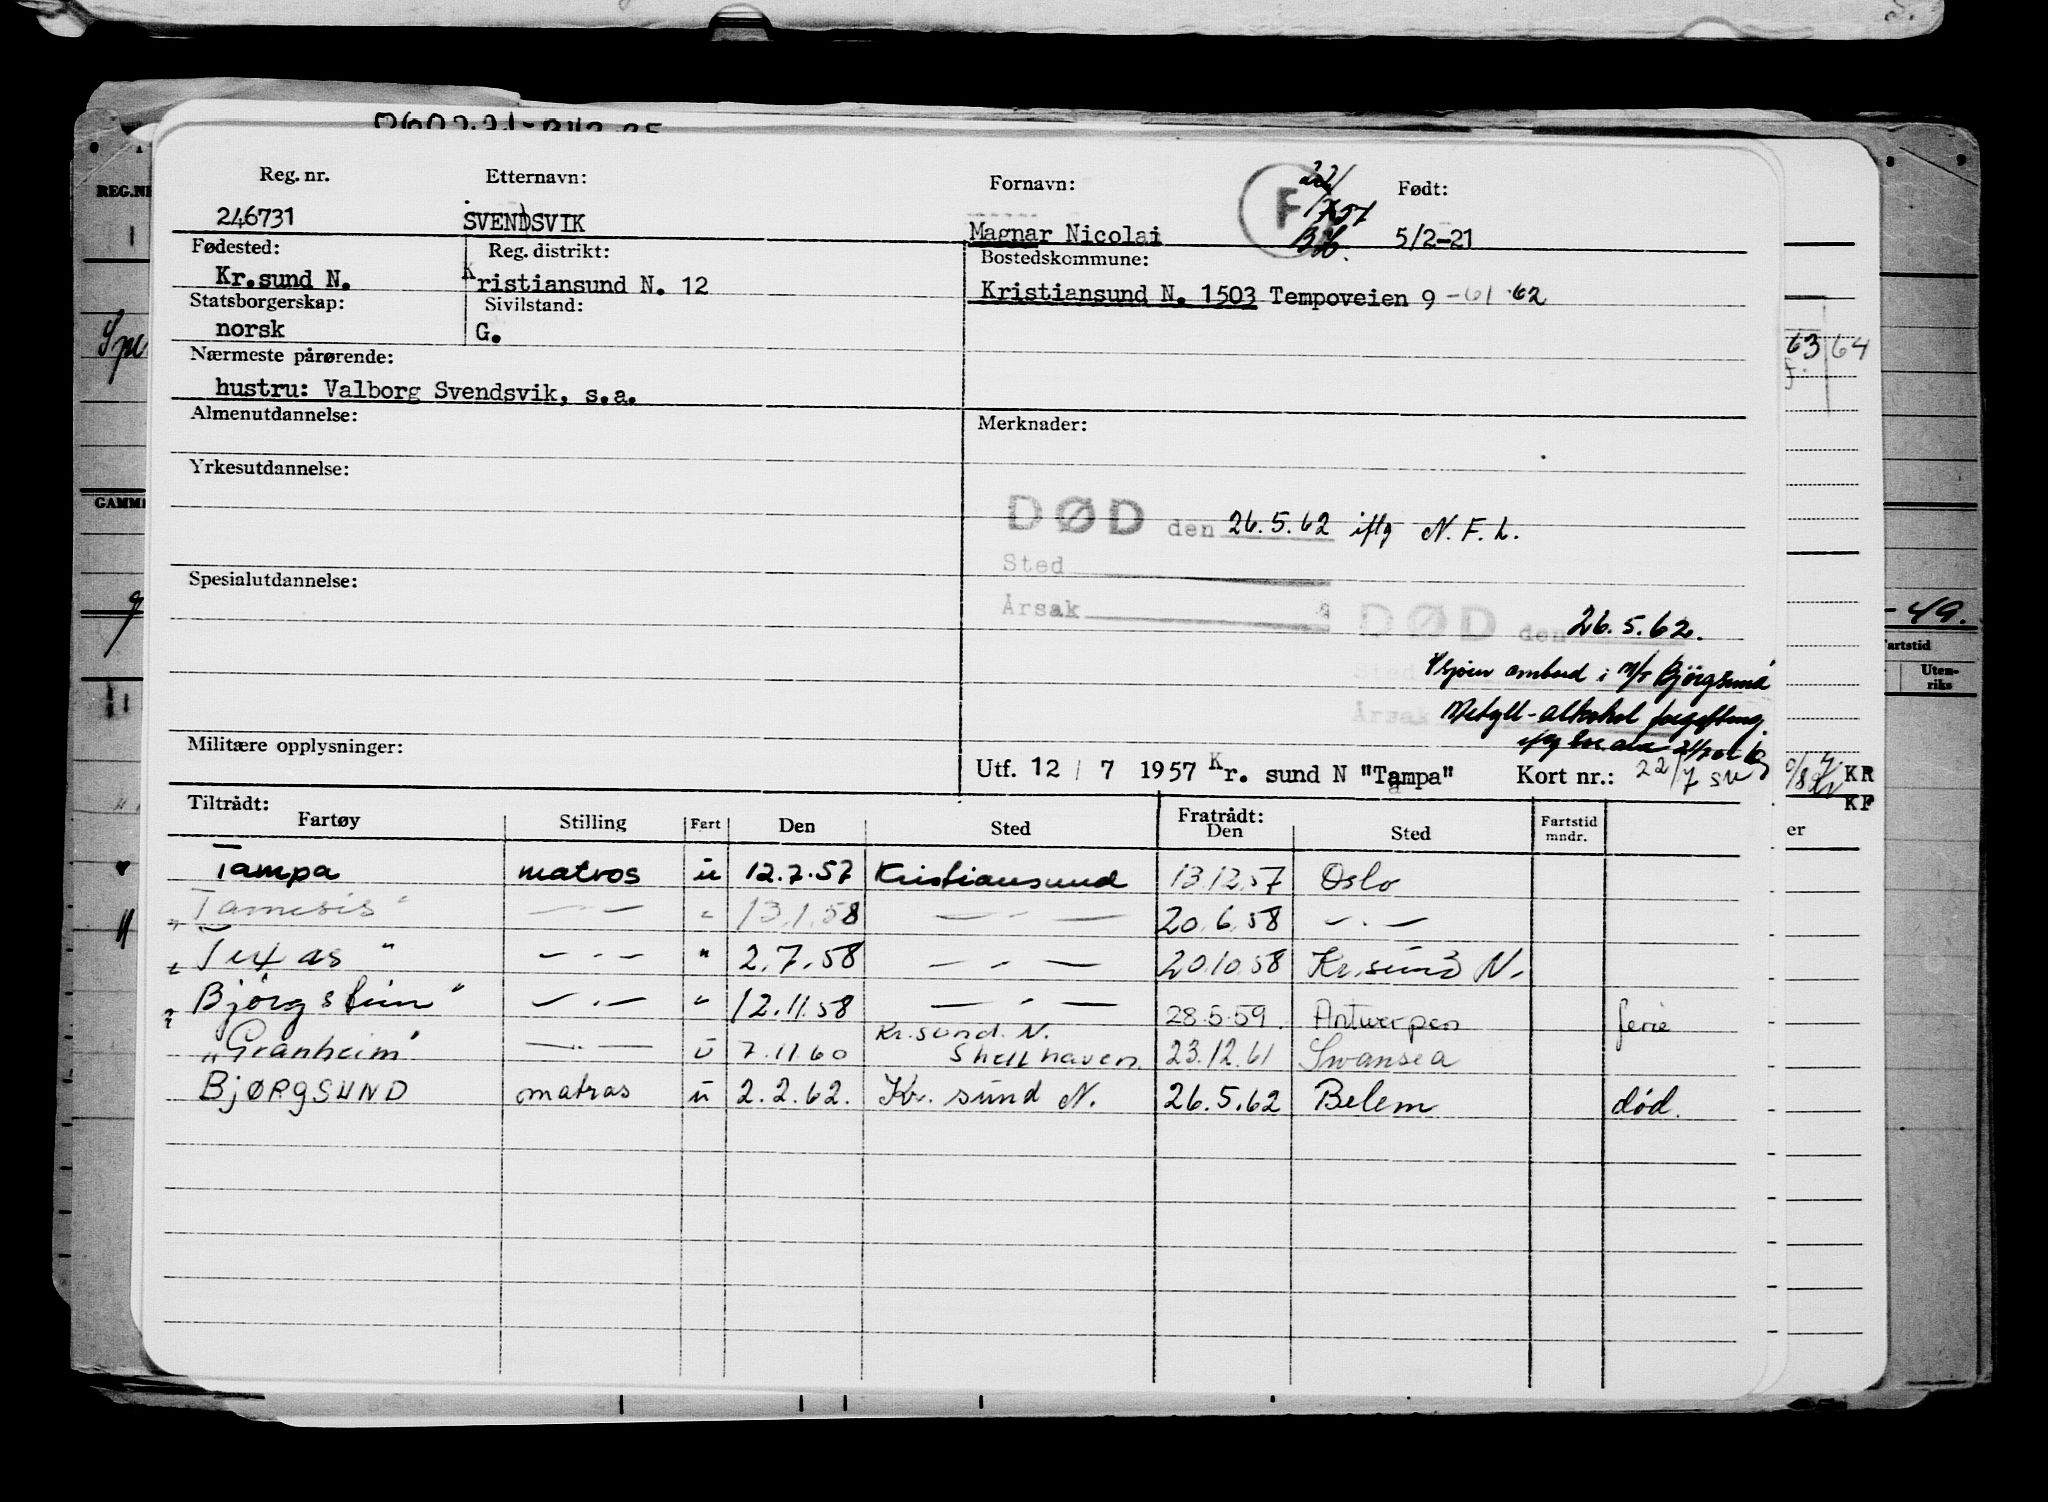 Reg. nr. Etternavn: Fornavn: F Født:
246731 SVENDSVIK Magnar Nicolai 5/2-21
Fødested: Reg. distrikt: Bostedskommune:
Kr.sund N. Kristiansund N. 12 Kristiansund N. 1503 Tempoveien 9 -61 62
Statsborgerskap: Sivilstand:
norsk G.
63 64
Nærmeste pårørende:
hustru: Valborg Svendsvik, s.a.
Almenutdannelse: Merknader:
Yrkesutdannelse:
GAMM
DØD den 26.5.62 iflg N.F.L.
Sted
Årsak
Spesialutdannelse:
DØD den 26.5.62.
Sted ombord i M/T Bjørgsund
Årsak Metyll-alkohol
- 49.
artstid
Uten-
riks
Militære opplysninger:
Utf. 12 / 7 1957 Kr. sund N "Tampa" Kort nr.: 22/7
KR
KF
Tiltrådt: Fratrådt:
Fartøy Stilling Fart Den Sted Den Sted Fartstid mndr.
er
Tampa matros u 12.7.57 Kristiansund 13.12.57 Oslo
"Tamesis" — · — " 13.1.58 — · — 20.6.58 — · —
"Texas" — · — " 2.7.58 — · — 20.10.58 Kr.sund N.
"Bjørgstein" — · — " 12.11.58 — · — 28.5.59. Antwerpen ferie
Kr.sund. N.
"Granheim" — · — u 7.11.60 Shell haven. 23.12.61 Swansea
BJØRGSUND matros u 2.2.62. Kr. sund N. 26.5.62 Belem død.
REG.NR